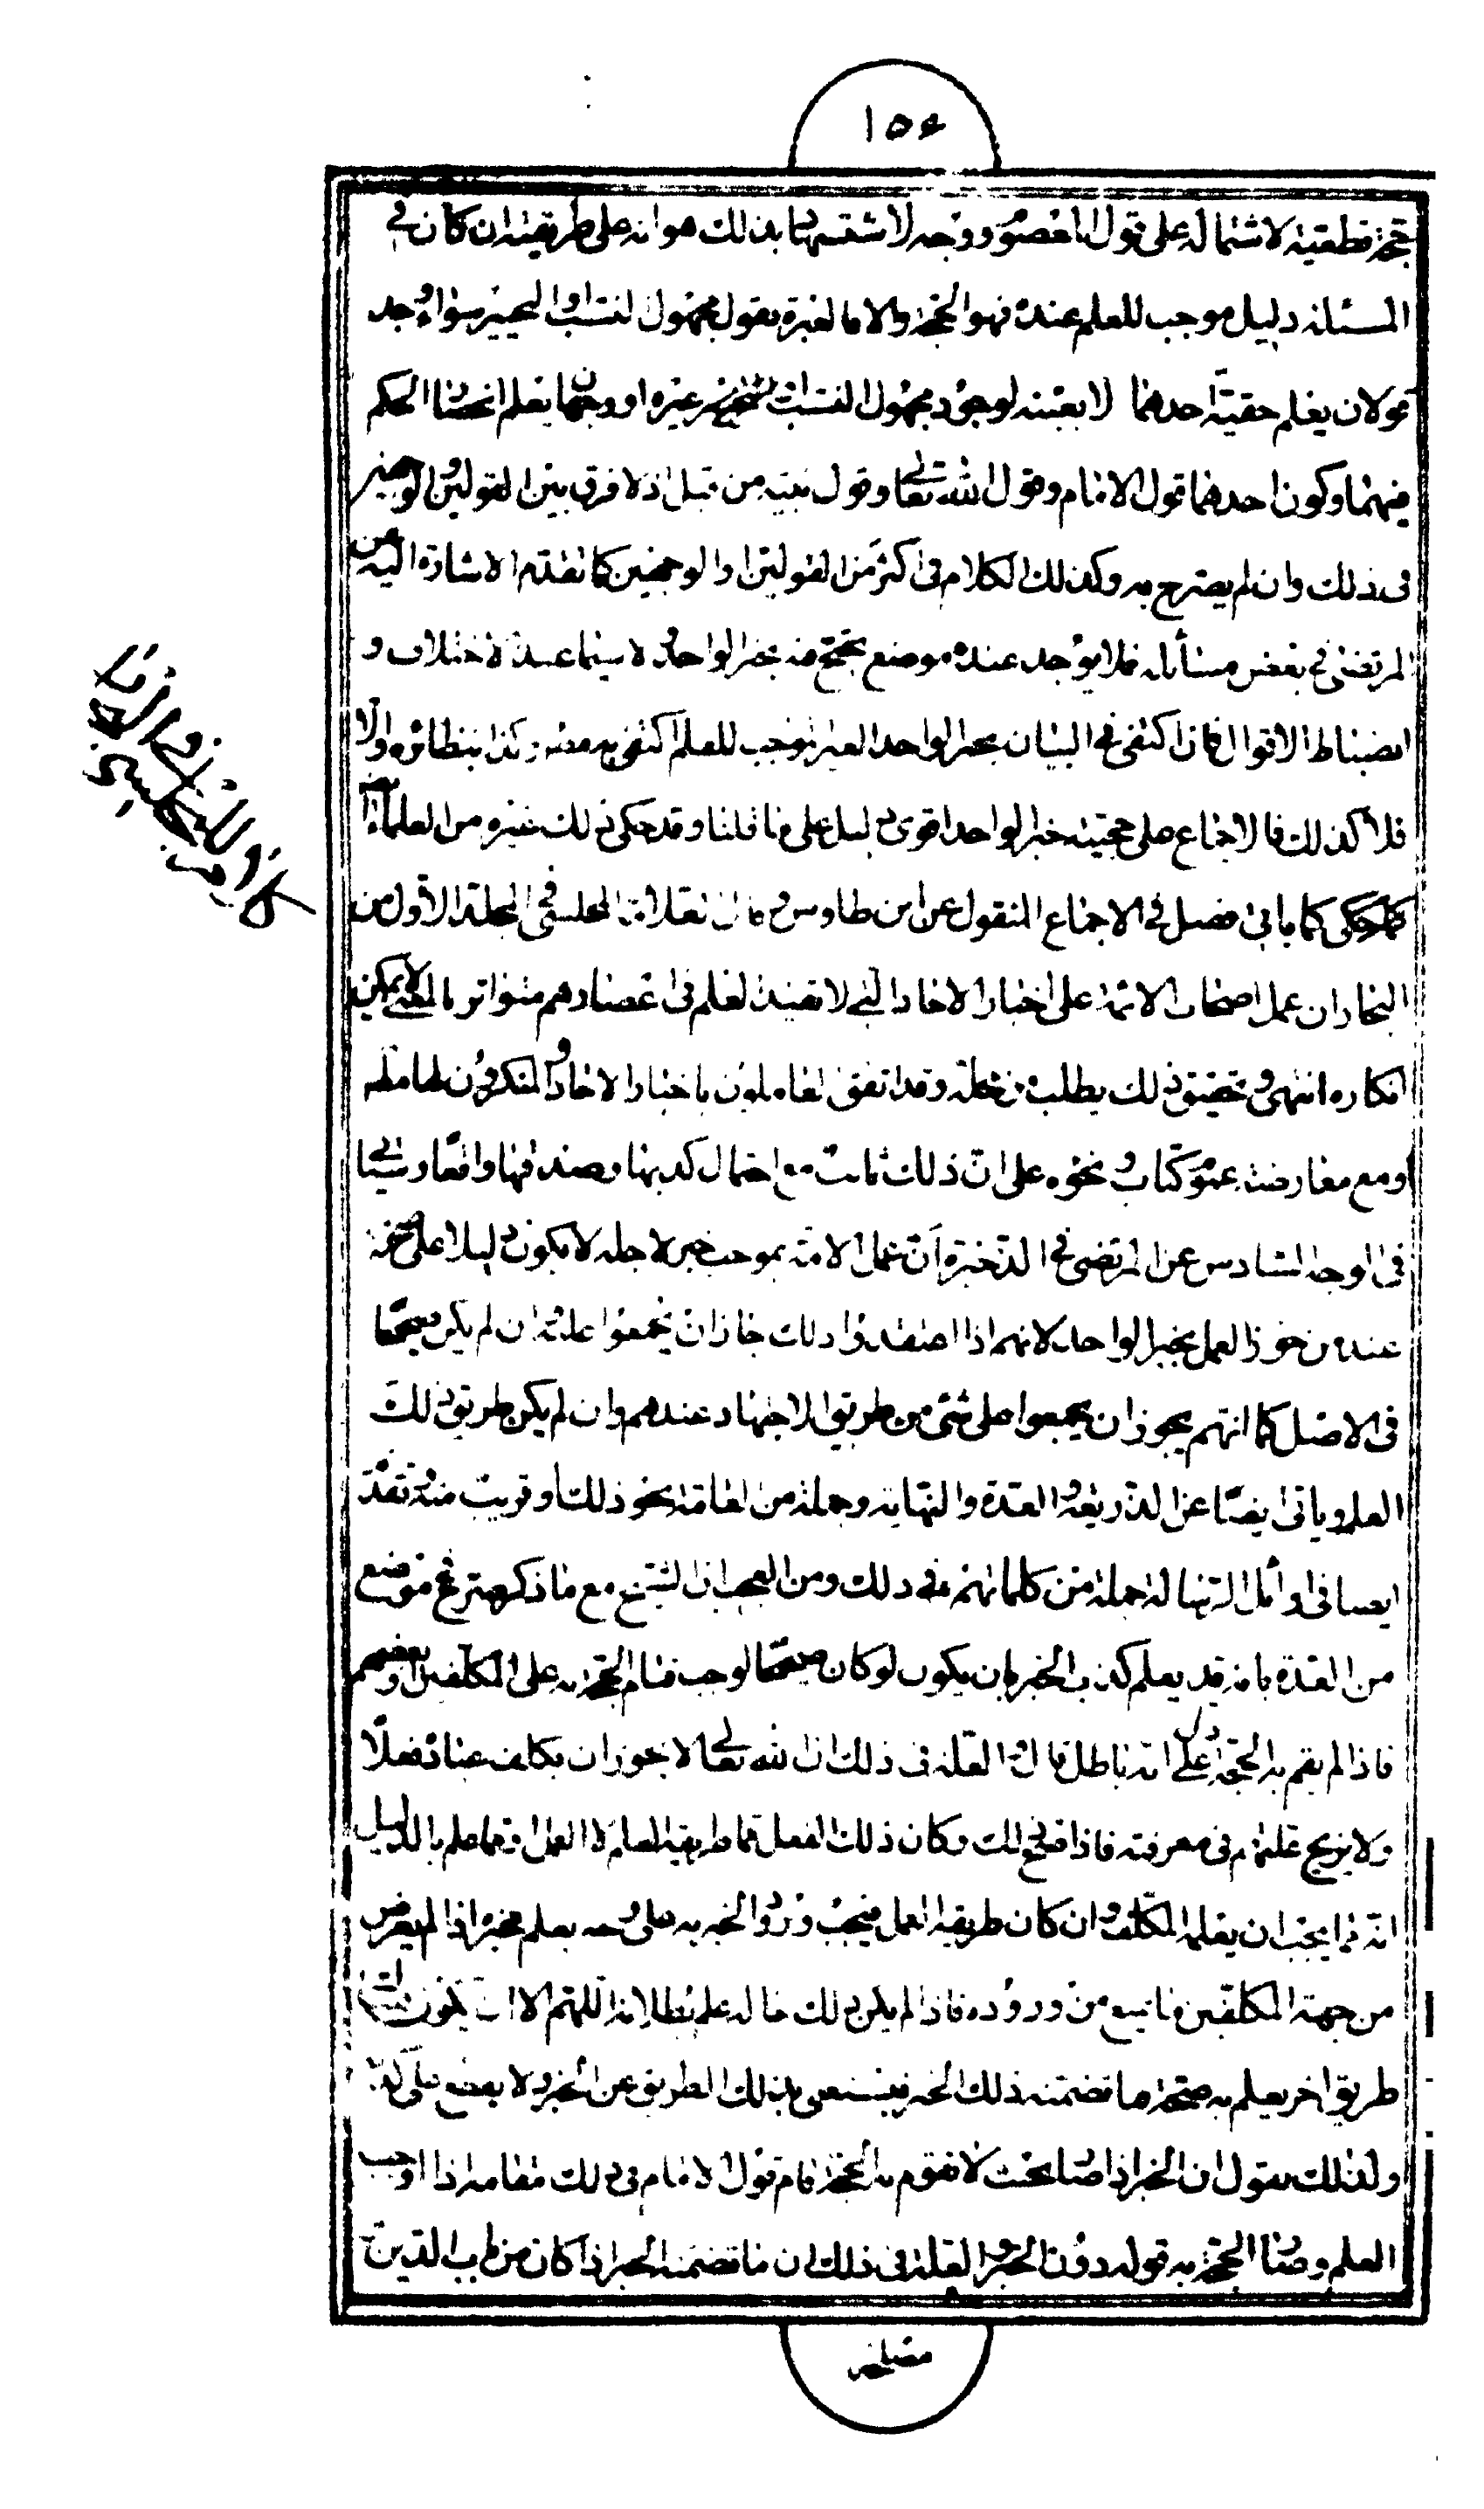 ١٥٤
حجة قطعية لاشتماله على قول المعصوم ووجه لا شتمها بذلك هو انه على طريقته ان كان في
المسئلة دليل موجب للعلم عنده فهو الحجة والا فالعبرة بقول مجهول النسب والتخيير سواء وجد
قولان يعلم حقية احدهما لا بعينه لوجود مجهول النسب غيره او وجها يعلم انحصار الحكم
فيهما وكون احدهما قول الامام وقول الله تعالى وقول نبيه من قبل اذ لا فرق بين القولين والوجهين
في ذلك وان لم يصرح به وكذلك الكلام في اكثر من القولين او الوجهين كما تقدم الاشارة اليه عن
المرتضى في بعض مسائله فلا يوجد عنده موضع يحتج فيه بخبر الواحد لا سيما عند الاختلاف و
انضباط الاقوال فان اكتفى في البيان بخبر الواحد الغير الموجب للعلم اكتفى به معنه وكذا بنظائره والا
فلا كذلك فالاجماع على حجية خبر الواحد اقوى دليل على ما قلنا وقد حكى ذلك غيره من العلماء
كما حكى كما ياتي مفصل في الاجماع المنقول عن ابن طاوس وقال نقلا المجلسي في المجلد الاول من
البحار ان عمل اصحاب الائمة على اخبار الاحاد التي لا تفيد العلم في اعصارهم متواتر بالمعنى لا يمكن
انكاره انتهى وتحقيق ذلك يطلب من محله وقد اتفق العاملون باخبار الاحاد والمنكرون لها مطلقا
ومع معارضة عموم كتاب ونحوه على ان ذلك ثابت مع احتمال كذبها وصدقها واقعا وسيجئ
في الوجه السادس عن المرتضى في الذخيرة ان عمل الامة بموجب خبر لاجله لا يكون دليلا على صحته
عند من جوز العمل بخبر الواحد لانهم اذا اعتقدوا ذلك جاز ان يجمعوا عليه وان لم يكن صحيحا
في الاصل كما انهم يجوز ان يجمعوا على شئ من طريق الاجتهاد عندهم وان لم يكن طريق ذلك
العلم وياتي ايضا عن الذريعة والعدة والنهاية وجملة من العامة نحو ذلك او قريب منه وتقدم
ايضا في اوائل الرسالة جملة من كلماتهم في ذلك ومن العجب ان الشيخ مع ما ذكر صرح في موضع
من العدة بانه قد يعلم كذب الخبر بان يكون لو كان صحيحا لوجب قيام الحجة به على المكلفين او بعضهم
فاذا لم يقم به الحجة دل على انه باطل قال والعلة في ذلك ان الله تعالى لا يجوز ان يكلف عباده فعلا
ولا يزيح علتهم في معرفته فاذا صح ذلك وكان ذلك الفعل مما طريقه العلم دون العمل او مما علم بالدليل
انه مما يجب ان يعلمه المكلف وان كان طريقه العمل فيجب ورود الخبر به على وجه يعلم مخبره اذا لم يعرض
من جهة المكلفين ما يمنع من وروده فاذا لم يكن ذلك حاله علم بطلانه اللهم الا ان يكون هناك
طريق اخر يعلم به صحة ما تضمنه ذلك الخبر فيستغنى بذلك الطريق عن الخبر ولا يقطع على كذبه
ولذلك نقول ان الخبر اذا صار بحيث لا تقوم به الحجة قام قول الامام في ذلك مقامه اذا اوجب
العلم وصار الحجة به قوله دون الخبر والعلة في ذلك ان ما تضمنه الخبر اذا كان من باب الدين